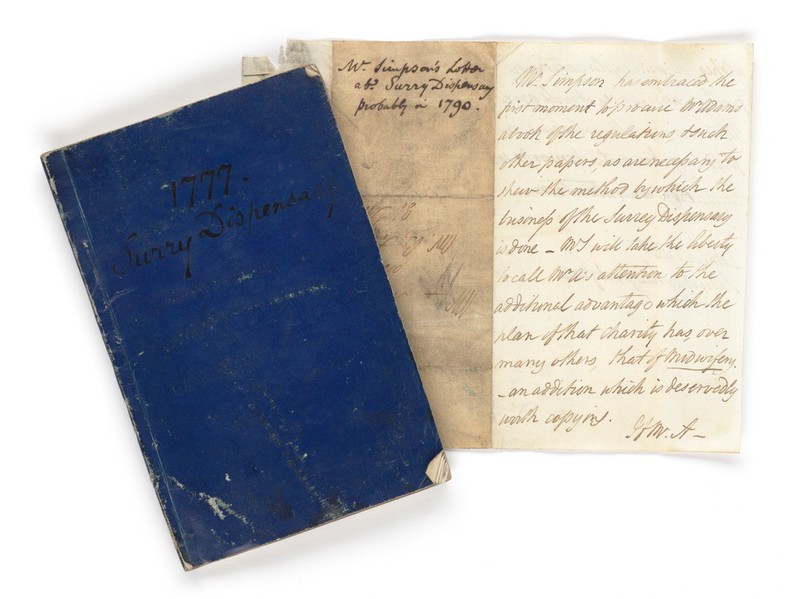 1777.
Surry Dispensary
Mr. Simpson's Letter
abt. Surry Dispensary
probably in 1790.
Mr. Simpson has embraced the
first moment to procure Mr Adams
a book of the regulations, & such
other papers, as are necessary to
shew the method by which the
business of the Surrey Dispensary
is done – Mr S will take the liberty
to call Mr A's attention to the
additional advantage which the
plan of that charity has, over
many others, that of Midwifery.
– an addition which is deservedly
worth copying.